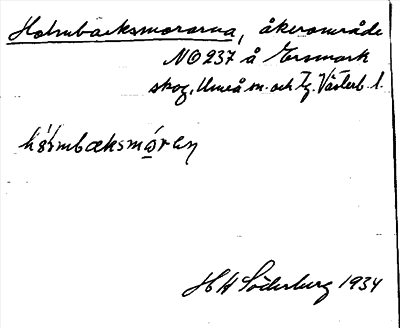 Holmbäcksmorarna, åkerområde
NO 237 å Ersmark
skog, Umeå sn. och tg. Västerb. l.
hólmbæksmóran
H H Söderberg 1934